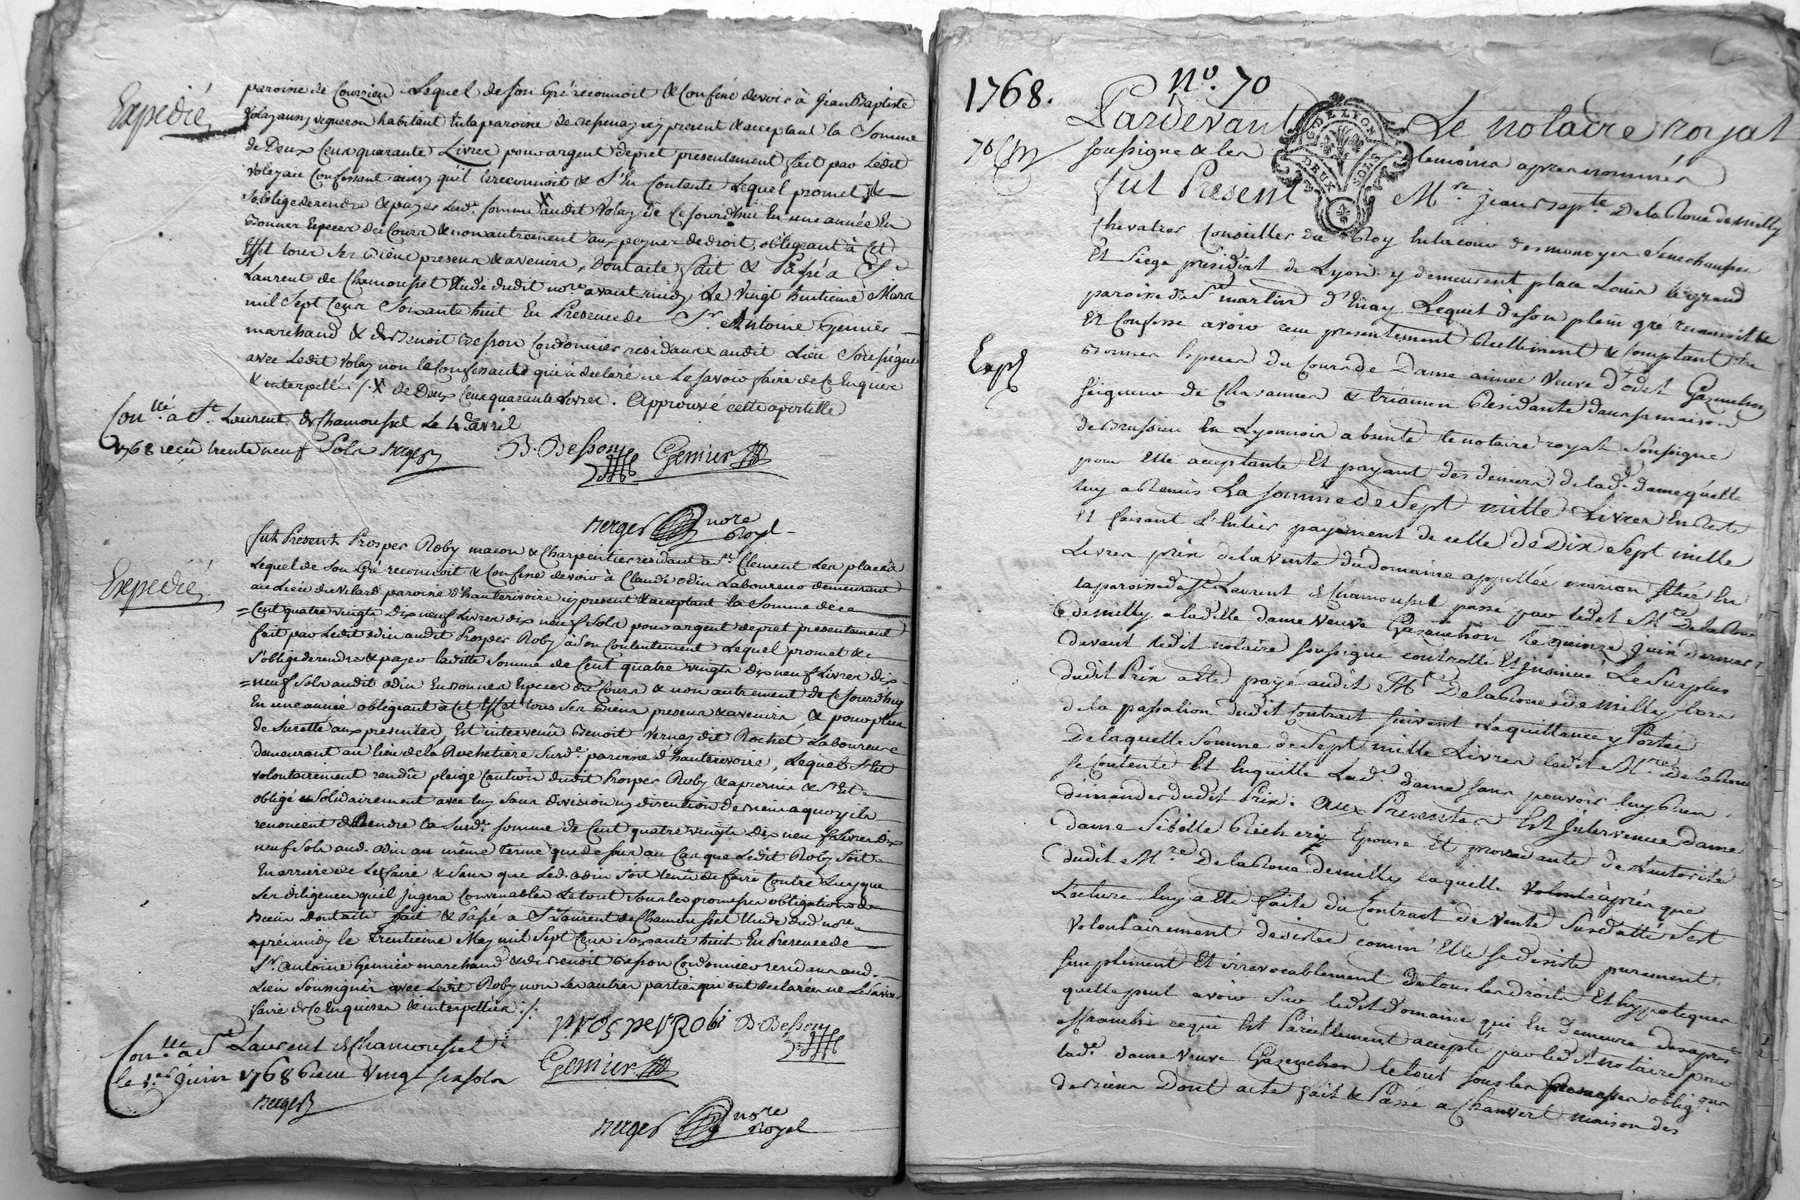 Expedié
paroisse de Courzieu Lequel de son Gré reconnoit & Confesse devoir à Jean Baptiste
Volay aussy vigneron habitant en la paroisse de cy present & acceptant la Somme
de Deux Cent quarante Livres pour argent de pret presentement fait par Ledit
Volay au Confessant ainsy qu'il le reconnoit & S'en Contante Lequel promet &
S'oblige de rendre & payer Lad.e somme X audit Volay De Ce jourd'huy En une année En
Bonnes Especes du Cours & non autrement aux peynes de droit, obligeant à Cet
Effet tous Ses Biens presens & avenirs, Dont acte fait & Passé a St
Laurent de Chamousset Etude dudit nore avant midy Le Vingt huitieme Mars
mil Sept Cent Soixante huit En Presence de Sr. Antoine Gemier
marchand & de Benoit Besson Cordonnier residans audit Lieu Soussignés
avec Ledit Volay non le Confessant qui a declaré ne Le Savoir faire de Ce Enquis
& interpellé ./. X de Deux Cent quarante Livres. Approuvé cette apostille
Conllé à St. Laurent de Chamousset Le 4e avril
1768 reçu trente neuf Sols
B. Besson Gemier
nore
Royl
Expedié
fut Present Prosper Roby maçon & Charpentier residant a St Clement Les places
Lequel de son Gré reconnoit & Confesse devoir à Claude odin Laboureur demeurant
au Lieu du Vilard paroisse d'hauterivoire cy present & acceptant la Somme de
=Cent quatre vingts Dix neuf Livres dix neuf Sols pour argent de pret presentement
fait par Ledit odin audit Prosper Roby à son Contentement Lequel promet &
S'oblige de rendre & payer laditte Somme de Cent quatre vingts Dix neuf Livres dix
=neuf Sols audit odin En Bonnes Especes du Cours & non autrement de Ce jourd'huy
En une année obligeant à Cet Effet tous Ses Biens presens & avenirs & pour plus
de Sureté aux presentes, Est intervenu Benoit Vernay dit Rochet Laboureur
demeurant au lieu de la Rochetiere Surd.e paroisse d'hauterivoire, Lequel S'est
volontairement rendu pleige Caution dudit Prosper Roby & a promis & S'est
obligé Solidairement avec luy Sans division ny discution de Biens a quoy il a
renoncent de rendre la Susd.e Somme de Cent quatre vingts Dix neuf Livres Dix
neuf Sols aud. odin au même terme que dessus au Cas que Ledit Roby Soit
En arriere de Le faire & Sans que Led. odin Soit tenu de faire Contre Luy que
Les diligences qu'il jugera Convenables Le tout Sous les promesses obligations de
Biens Dont acte fait & Passé a St Laurent de Chamousset Etude dud. nore
après midy le trentieme May mil Sept Cent Soixante huit En Presence de
Sr. Antoine Gemier marchand & de Benoit Besson Cordonnier residans aud.
Lieu Soussignés avec Ledit Roby non Les autres parties qui ont declarées ne Le Savoir
faire de Ce Enquises & interpellées ./.
prosper Robi B. Besson
Conllé a St Laurent de Chamousset
le 1er Juin 1768 reçu Vingt six sols
Gemier
nore
Royal
1768. no. 70
Pardevant Le notaire royal
G. DE LYON
DEUX SOLS
soussigné & les temoins apres nommés
fut Present Mre. jean Bapte. De la Roue de milly
Chevalier Conseiller du Roy En la cour des monoyes Senechaussée
Et Siege presidial de Lyon y demeurant place Louis le grand
paroisse de St martin d'Enay Lequel de son plein gré reconnoit
Expé
Et Confesse avoir reçu presentement reellement & Comptant En
Bonnes Especes du Cours de Dame aimée Veuve d'odet Gazanchon
seigneur de Chavannes & triamen Residante dans sa maison
de Brussieu En Lyonnois absente le notaire royal Soussigné
pour Elle acceptante Et payant des deniers de lad.e dame qu'elle
luy a Remis La somme de Sept mille Livres En reste
Et faisant L'entier payement de celle de Dix Sept mille
Livres prix de la vente du domaine appellé marion situé En
la paroisse de St Laurent de Chamousset passé par ledit Mre De la Roue
de milly a la ditte dame veuve Gazanchon le quinze Juin dernier
devant ledit notaire soussigné controllé Et insinué Le Surplus
dudit Prix a Eté payé audit Mre De la Roue de milly lors
de la passation dudit Contract suivant La quittance y Portée
De laquelle Somme de Sept mille Livres ledit Mre de la Roue
se contente Et En quitte Lad.e dame sans pouvoir luy Rien
demander dudit Prix. Aux Presentes Est Intervenue dame
dame Sibille Epouse Et procedante de L'autorité
dudit Mre De la Roue de milly laquelle après que
Lecture luy a Eté faite du Contract de Vente Susdatté S'est
Volontairement desistée comm' Elle se desiste purement
simplement Et irrevocablement De tous les droits Et hypoteques
quelle peut avoir Sur ledit domaine qui En demeure desapresent
affranchi ce qui Est Pareillement accepté par ledit notaire pour
lad.e dame veuve Gazanchon le tout sous les promesses oblig.ons
de Biens Dont acte fait & Passé a Chanvert maison des